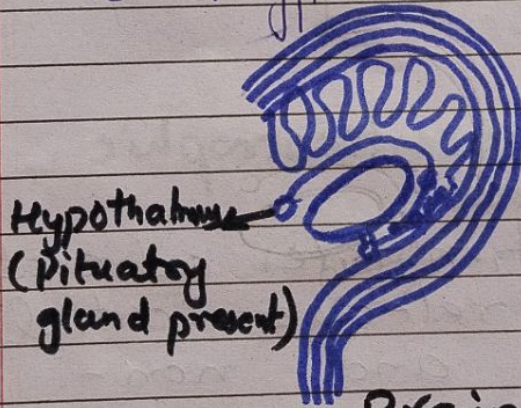 Hypothalmus
(Pituatory
gland present)